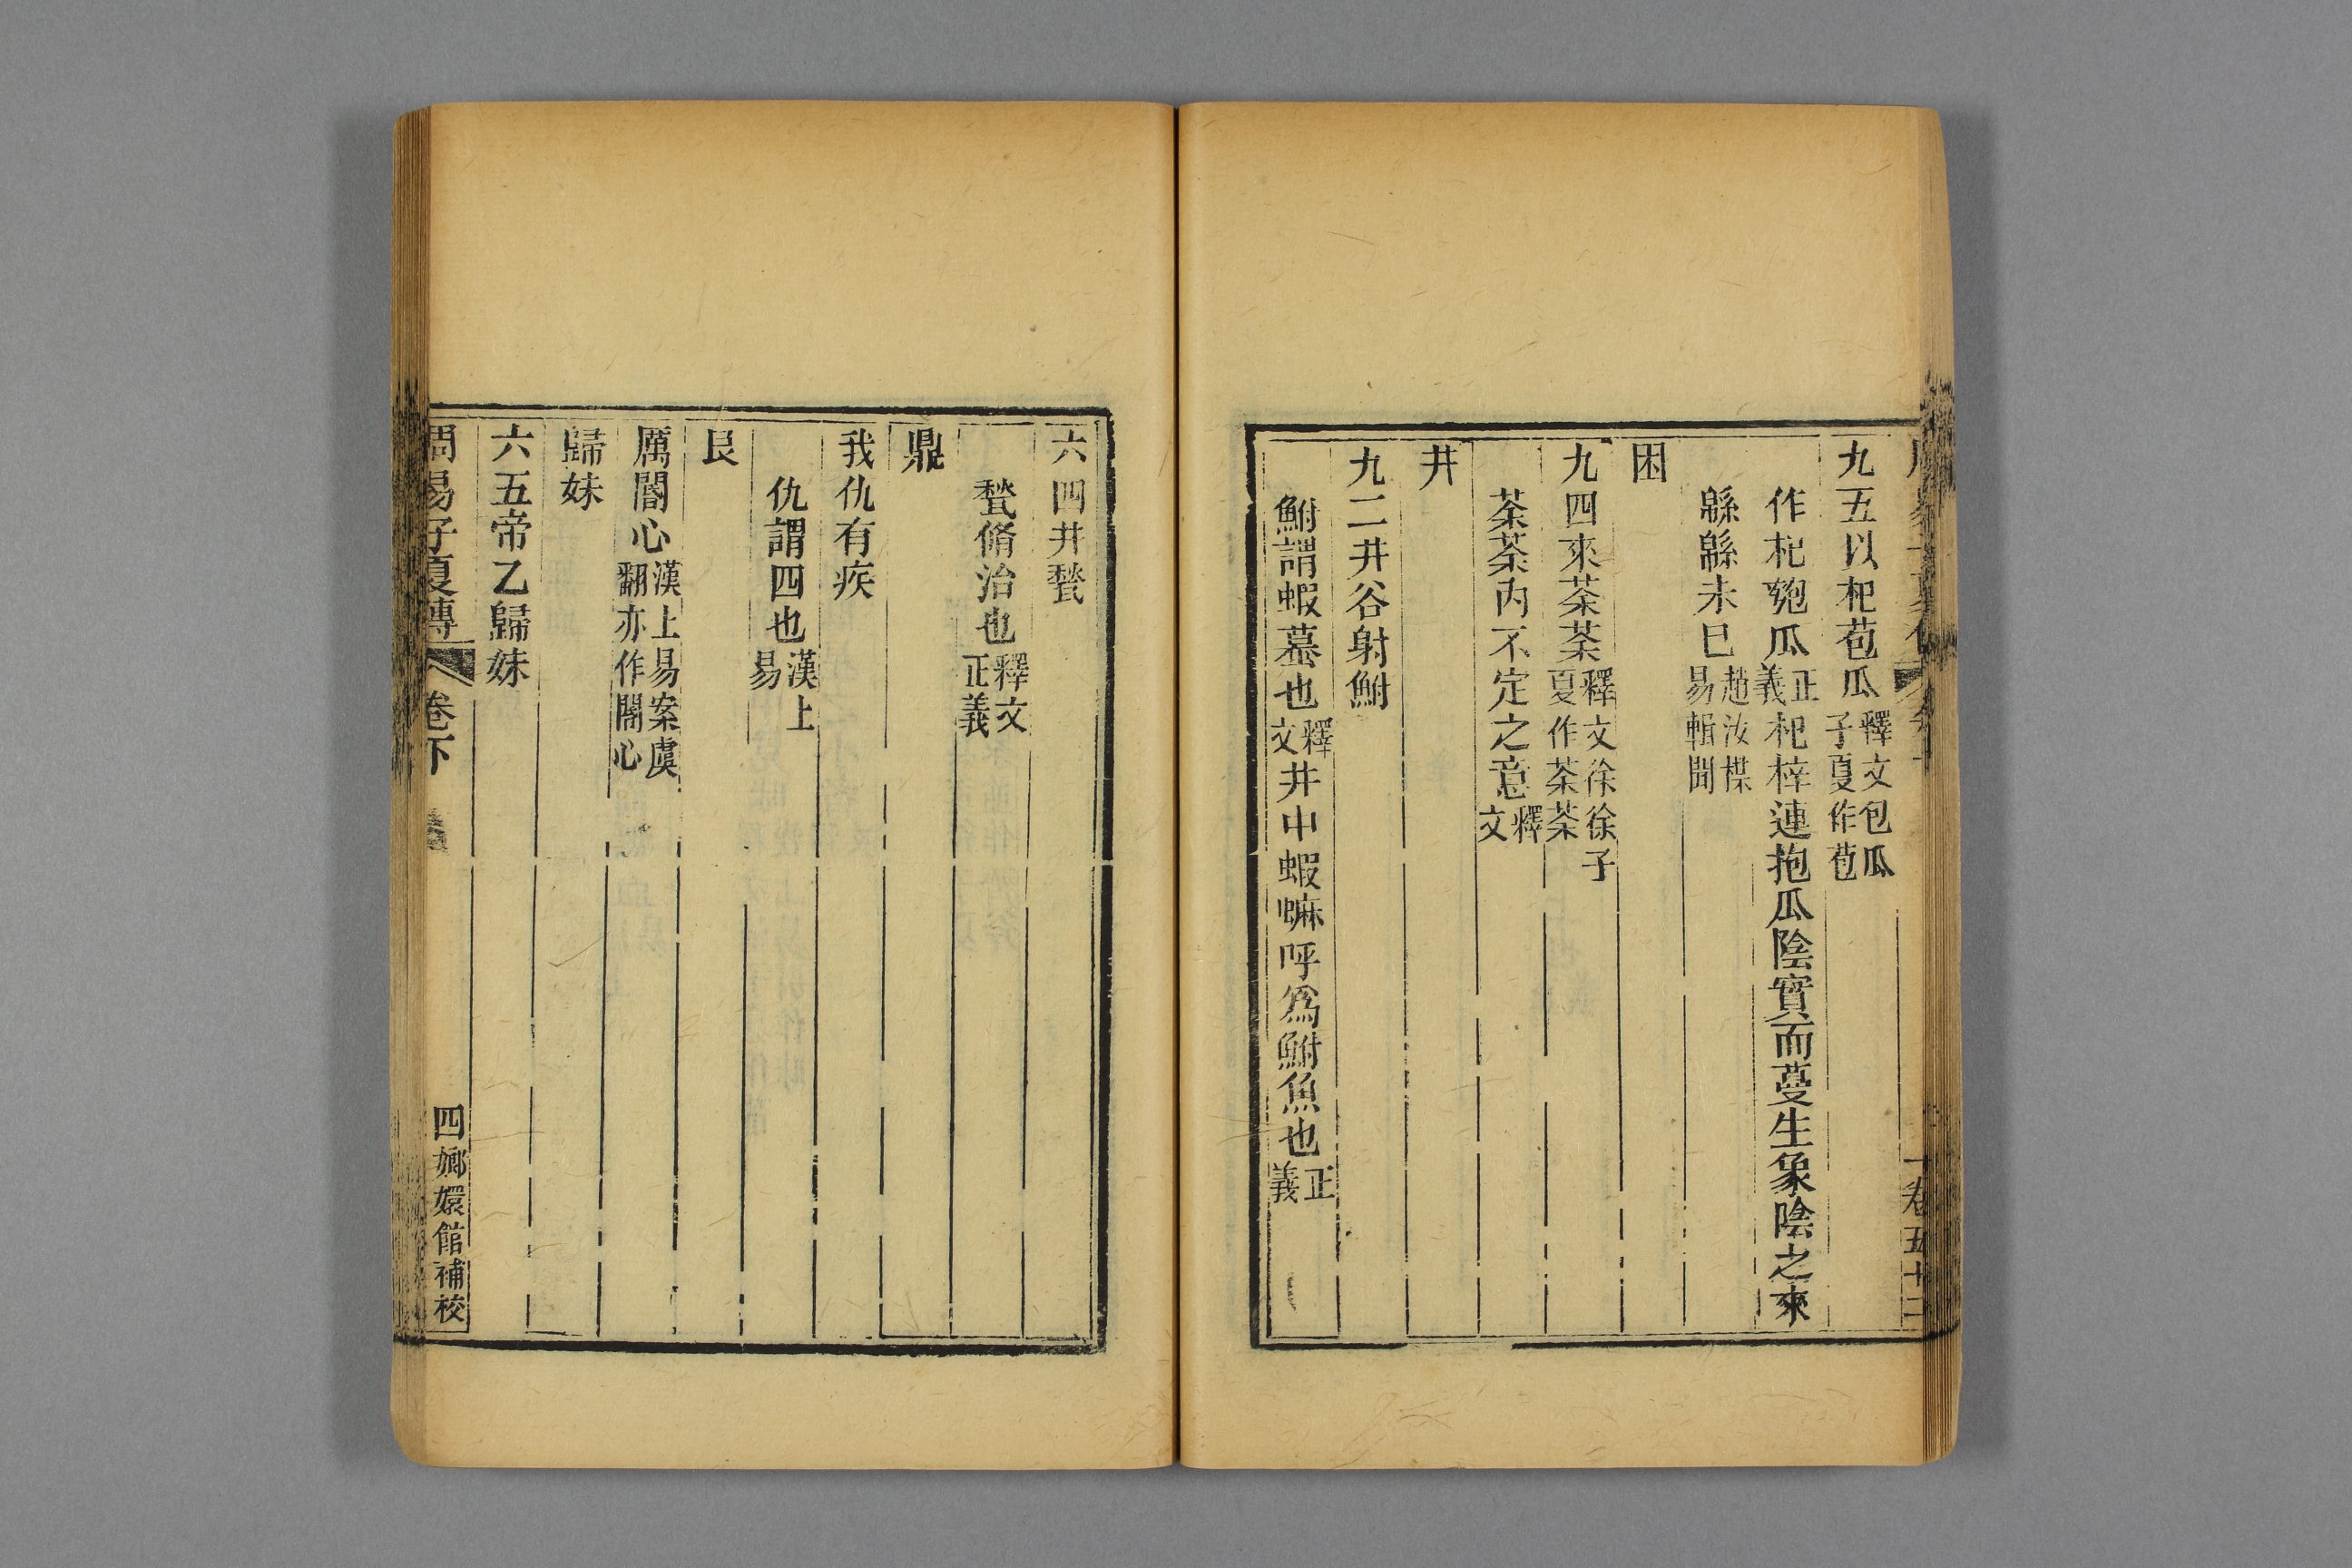 九五以杞苞瓜釋文包瓜子夏作苞
作杞匏瓜正義杞梓連抱瓜陰實而蔓生象陰之來
緜緜未巳趙汝楳易輯聞
困
九四來荼荼釋文徐徐子夏作荼荼
荼荼内不定之意釋文
井
九二井谷射鮒
鮒謂蝦蟇也釋文井中蝦䗫呼爲鮒魚也正義
卷五十二
六四井甃
甃脩治也釋文正義
鼎
我仇有疾
仇謂四也漢上易
艮
厲閽心漢上易案虞翻亦作閽心
歸妹
六五帝乙歸妹
周易子夏傳 卷下 四 嫏嬛館補校